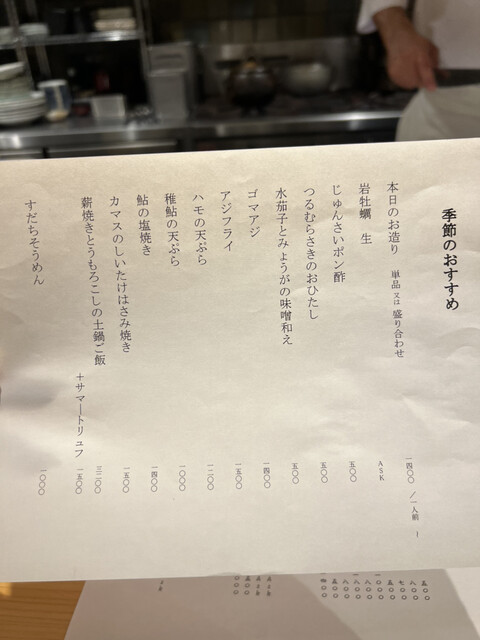 季節のおすすめ
本日のお造り 単品又は盛り合わせ 一四〇〇/一人前 〜
岩牡蠣 生 ASK
じゅんさいポン酢 五〇〇
つるむらさきのおひたし 五〇〇
水茄子とみょうがの味噌和え 五〇〇
ゴマアジ 一四〇〇
アジフライ 一五〇〇
ハモの天ぷら 一二〇〇
稚鮎の天ぷら 一〇〇〇
鮎の塩焼き 一四〇〇
カマスのしいたけはさみ焼き 一五〇〇
薪焼きとうもろこしの土鍋ご飯 三二〇〇
+サマートリュフ 一五〇〇
すだちそうめん 一〇〇〇